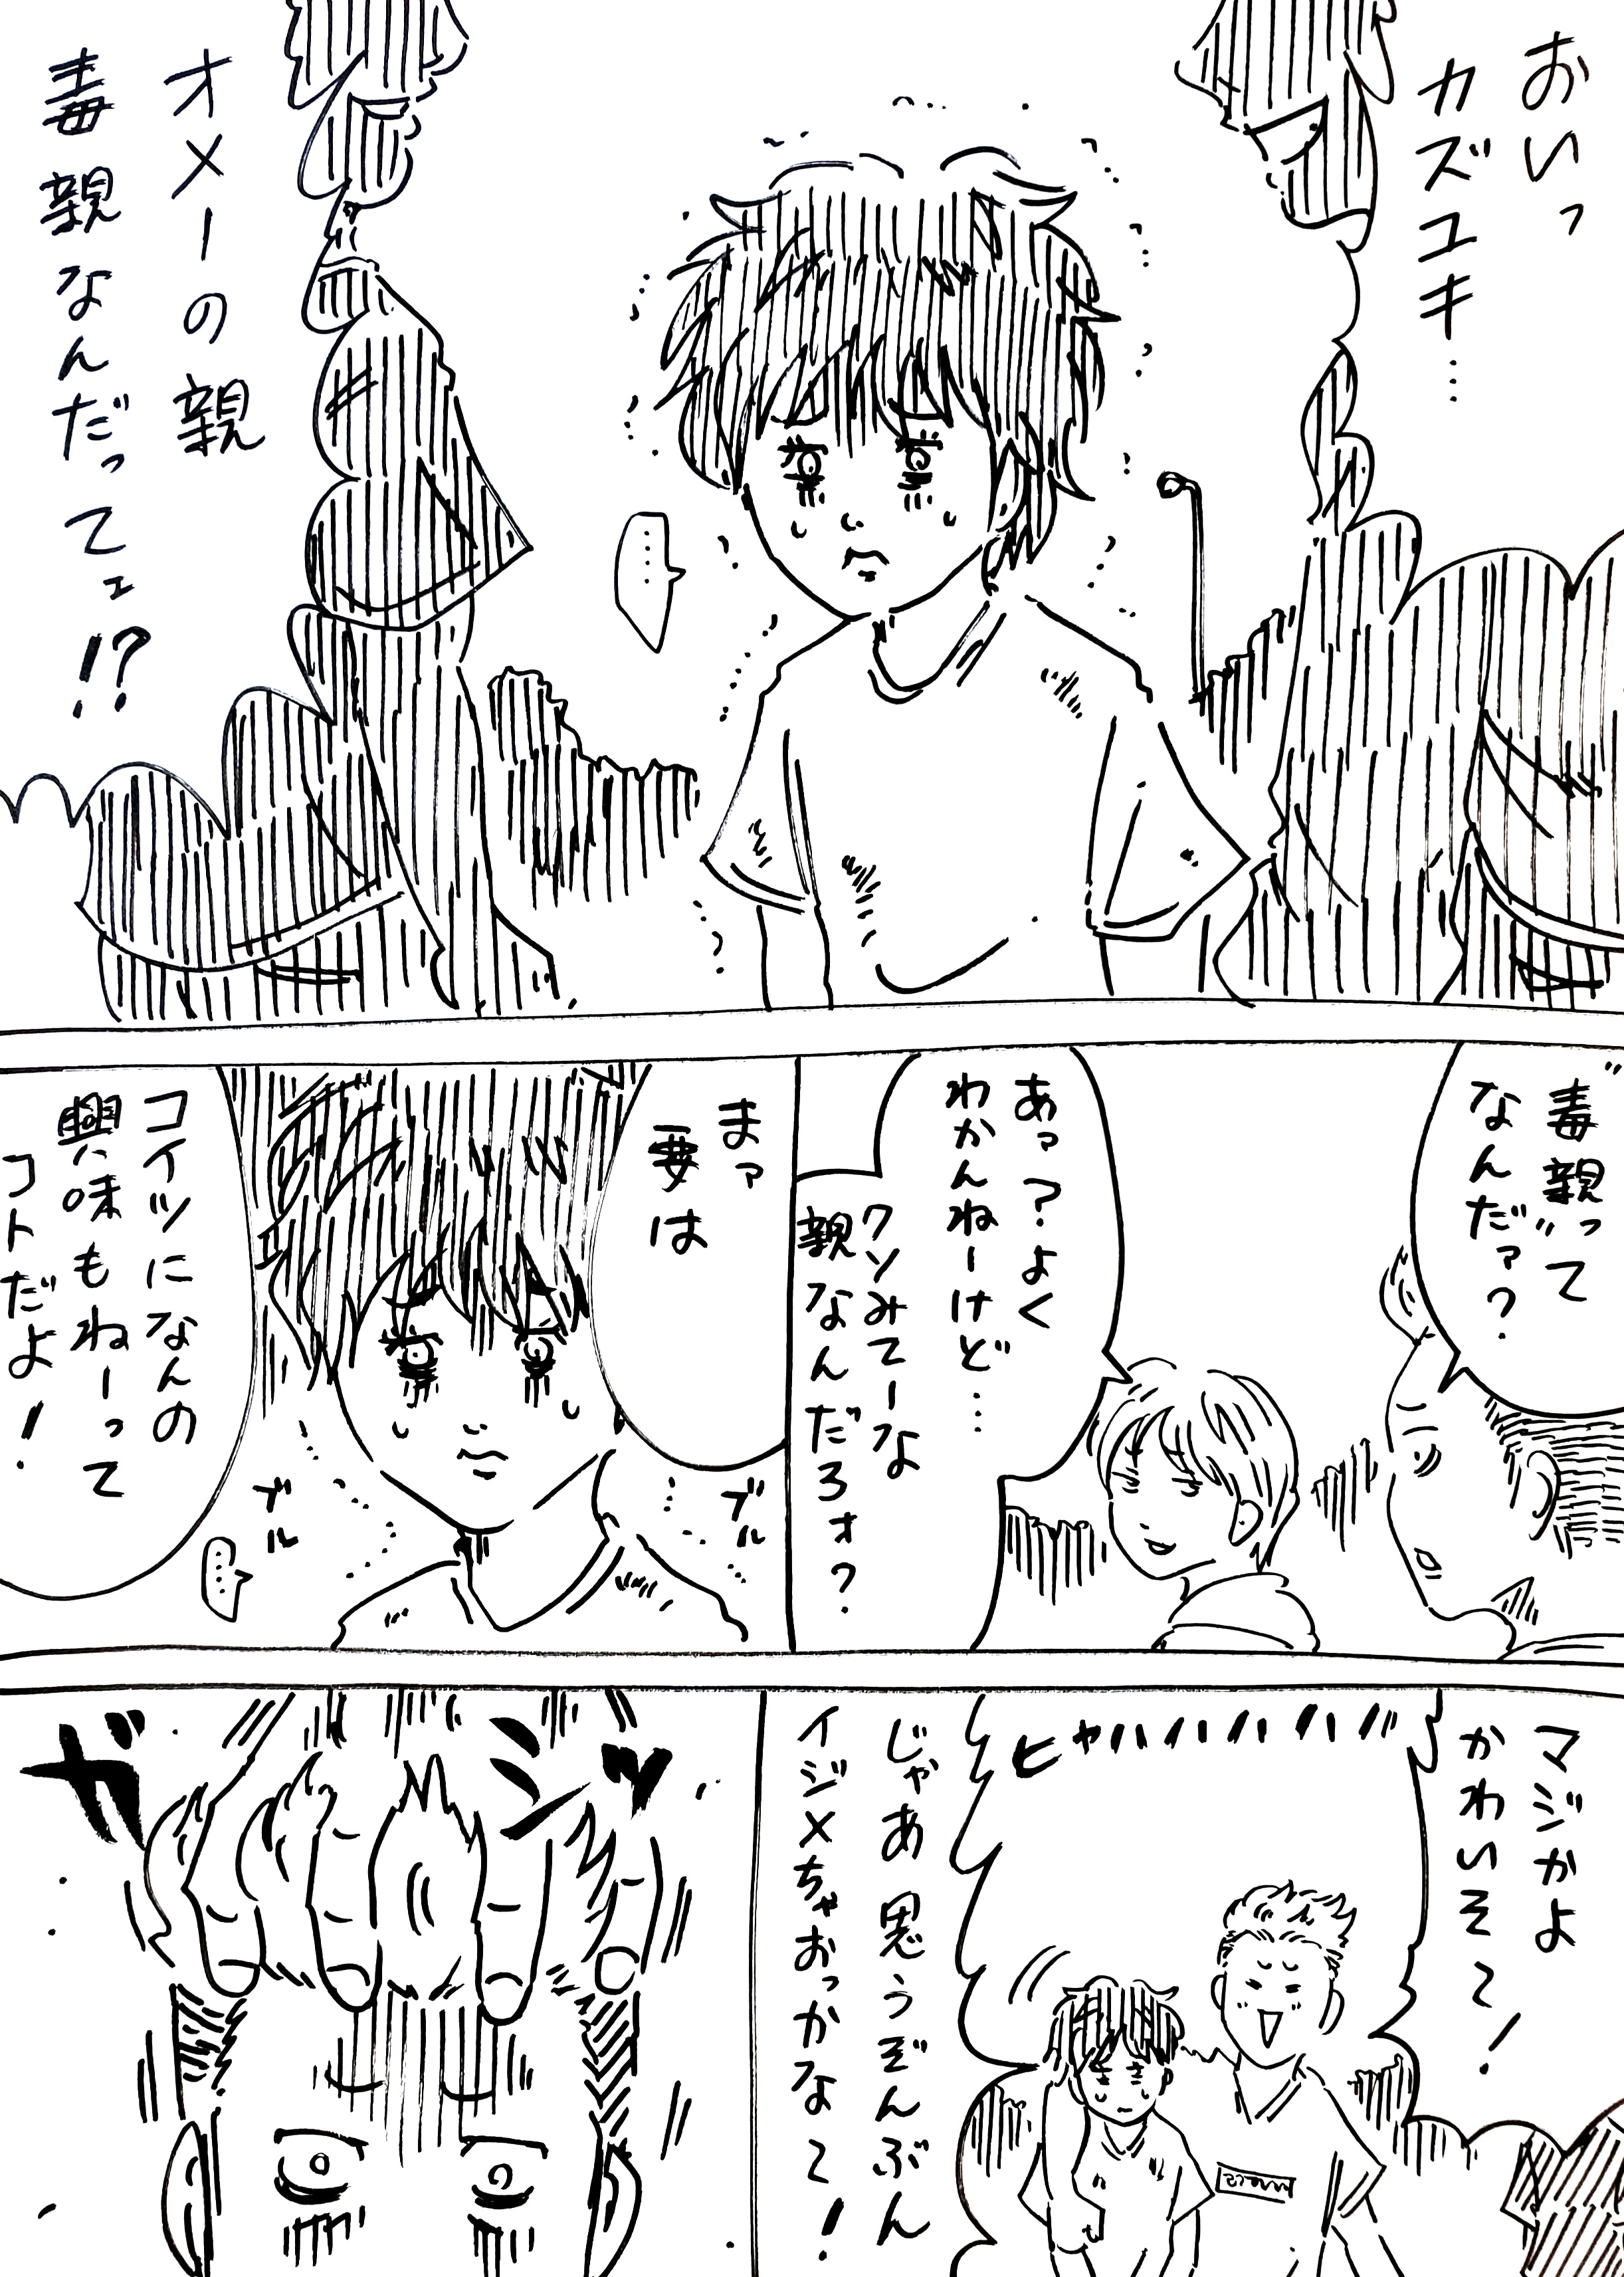 おいっ
カズユキ…
オメーの親
毒親なんだってェ!?
……
"毒親"って
なんだァ?
あァ?よく
わかんねーけど…
クソみてーな
親なんだろォ?
まァ
要は
コイツになんの
興味もねーって
コトだよ!
ブル
ブル
……
マジかよ
かわいそ〜!
ヒャハハハハハハ
じゃあ思うぞんぶん
イジメちゃおっかな〜!
ガシッ